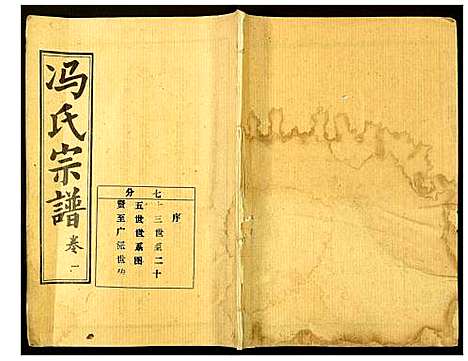 冯氏宗譜 卷一
七分
序
十三世至二十
五世世系图
贤至广派世